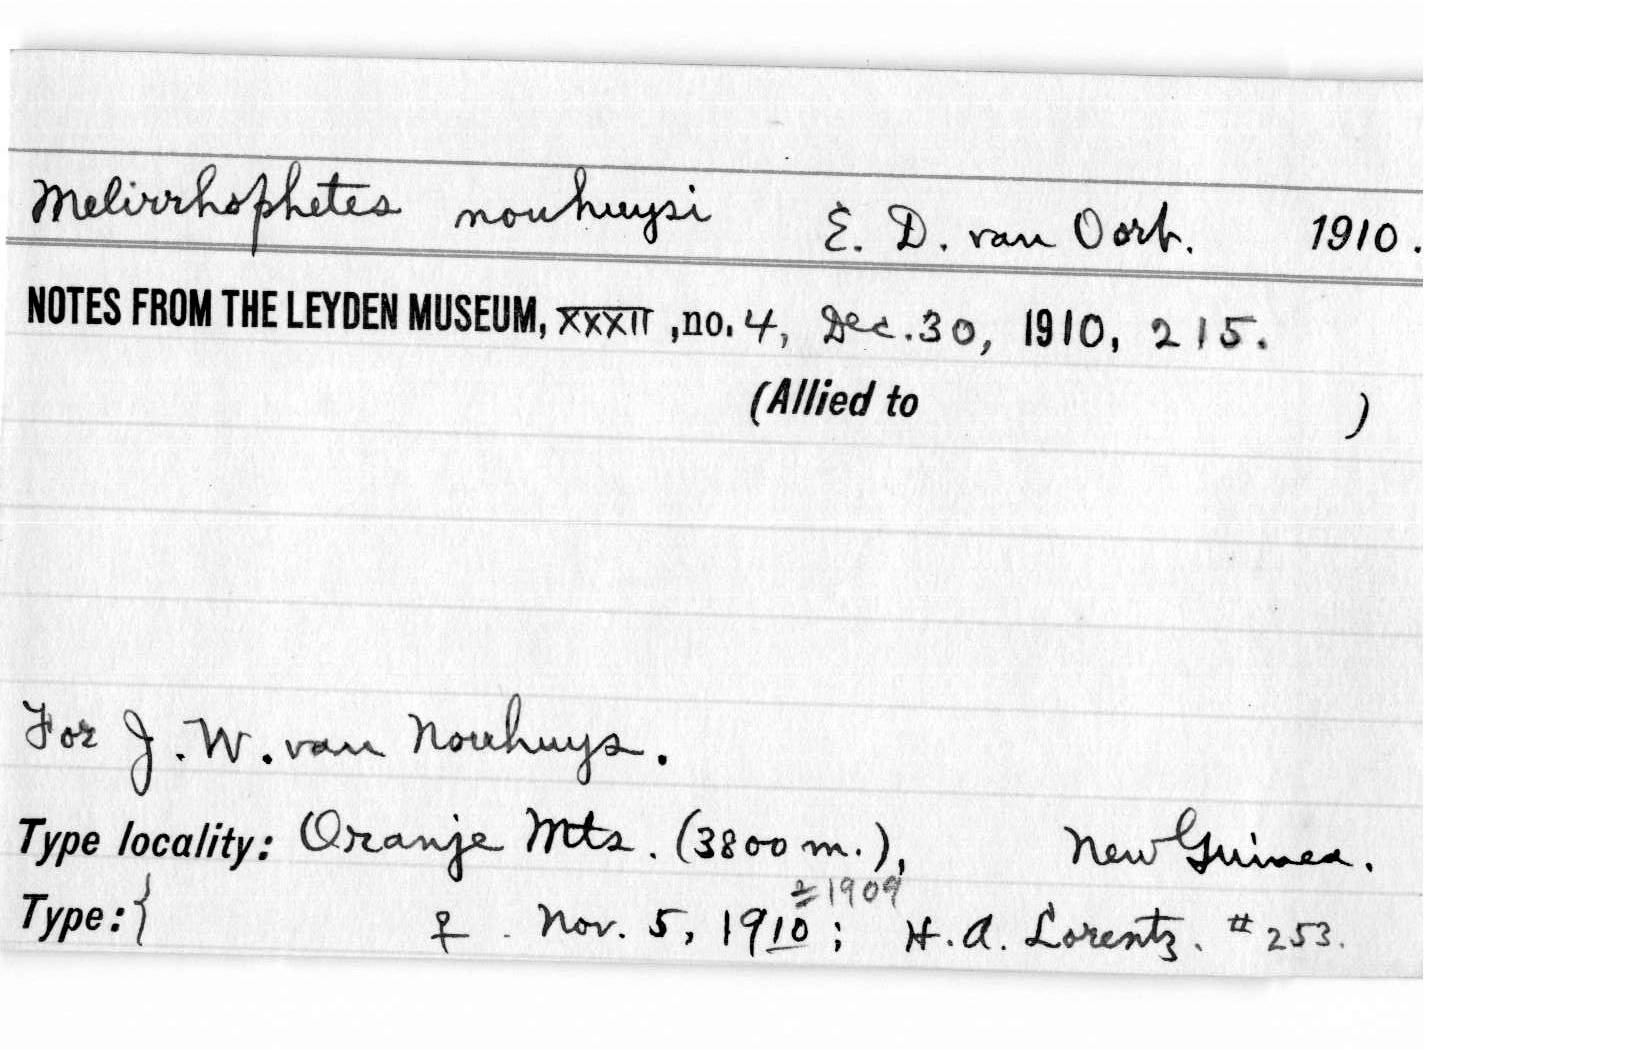 Melirrhophetes nouhuysi E. D. van Oort. 1910.
NOTES FROM THE LEYDEN MUSEUM, XXXII, no. 4, Dec. 30, 1910, 215.
(Allied to )
For J. W. van Nouhuys.
Type locality: Oranje Mts. (3800 m.), New Guinea.
± 1909
Type: { ♀. Nov. 5, 1910; H. A. Lorentz. # 253.